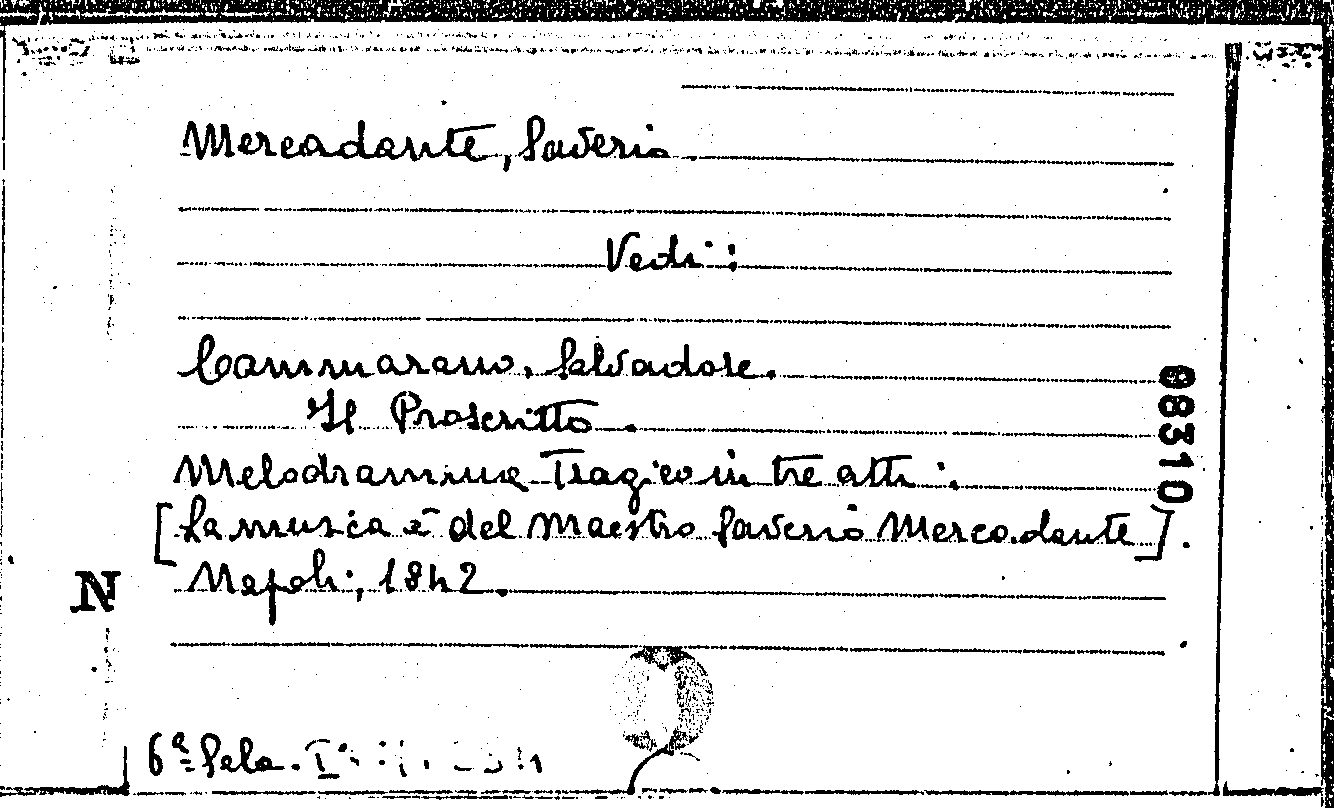 Mercadante, Saverio.
Vedi:
Cammarano, Salvadore.
Il Proscritto.
Melodramma Tragico in tre atti.
[La musica è del Maestro Saverio Mercadante].
Napoli, 1842.
N
08310
6ª Sala.